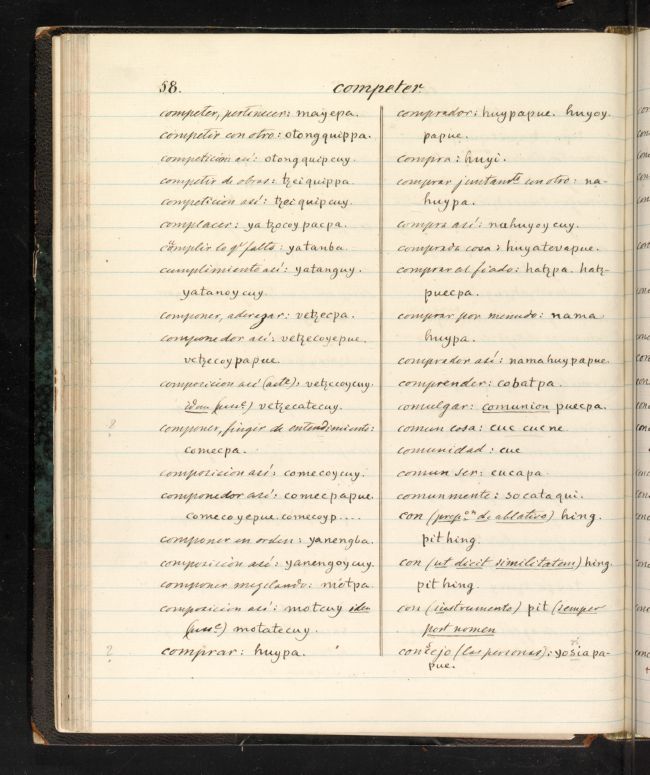 58.
competer
competer, pertenecer: mayepa.
competir con otro: otongquippa.
competicion asi: otongquipcuy.
competir de obras: tzeiquippa.
competicion asi: tzeiquipcuy.
complacer: yatzocoypacpa.
complir lo qe falto: yatanba.
cumplimiento asi: yatanguy.
yatanoycuy.
componer, aderezar: vetzecpa.
componedor asi: vetzecoyepue.
vetzecoypapue.
composicion asi (acte): vetzecoycuy.
idem vetzecatecuy.
?
componer, fingir de entendimiento:
comecpa.
composicion asi: comecoycuy.
componedor asi: comecpapue.
comecoyepue. comecoyp....
componer en orden: yanengba.
composicion asi: yanengoycuy.
componer mezclando: motpa.
composicion asi: motcuy idem
motatecuy.
?
comprar: huypa.
comprador: huypapue. huyoy.
papue.
compra: huyi.
comprar juntamte con otro: na-
huypa.
compra asi: nahuyoycuy.
comprada cosa: huyatevapue.
comprar al fiado: hatzpa. hatz-
puecpa.
comprar por menudo: nama
huypa.
comprador asi: namahuypapue.
comprender: cobatpa.
comulgar: comunion puecpa.
comun cosa: cue cuene
comunidad: cue
comun ser: cucapa.
comunmente: socataqui.
con (preposon de ablativo) hing.
pithing.
con (ut dicit similitatem) hing.
pithing.
con (instrumento) pit (semper
post nomen
consejo (las personas): yosiapa-
pue.